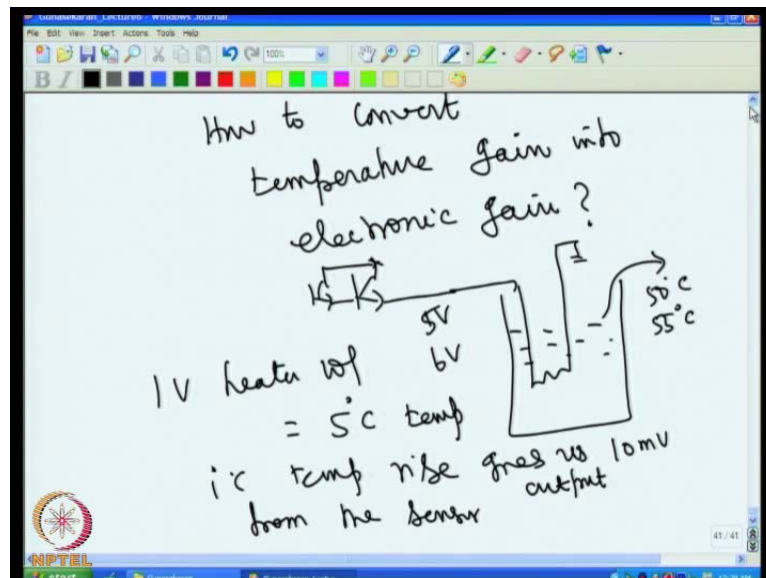 Gunasekaran_Lecture6 - Windows Journal
File Edit View Insert Actions Tools Help
100%
B I
How to convert
temperature gain into
electronic gain?
5V
6V
50°C
55°C
1V heater
= 5°C temp
1°C temp rise gives us 10mV
output
from the sensor
41/41
NPTEL
start